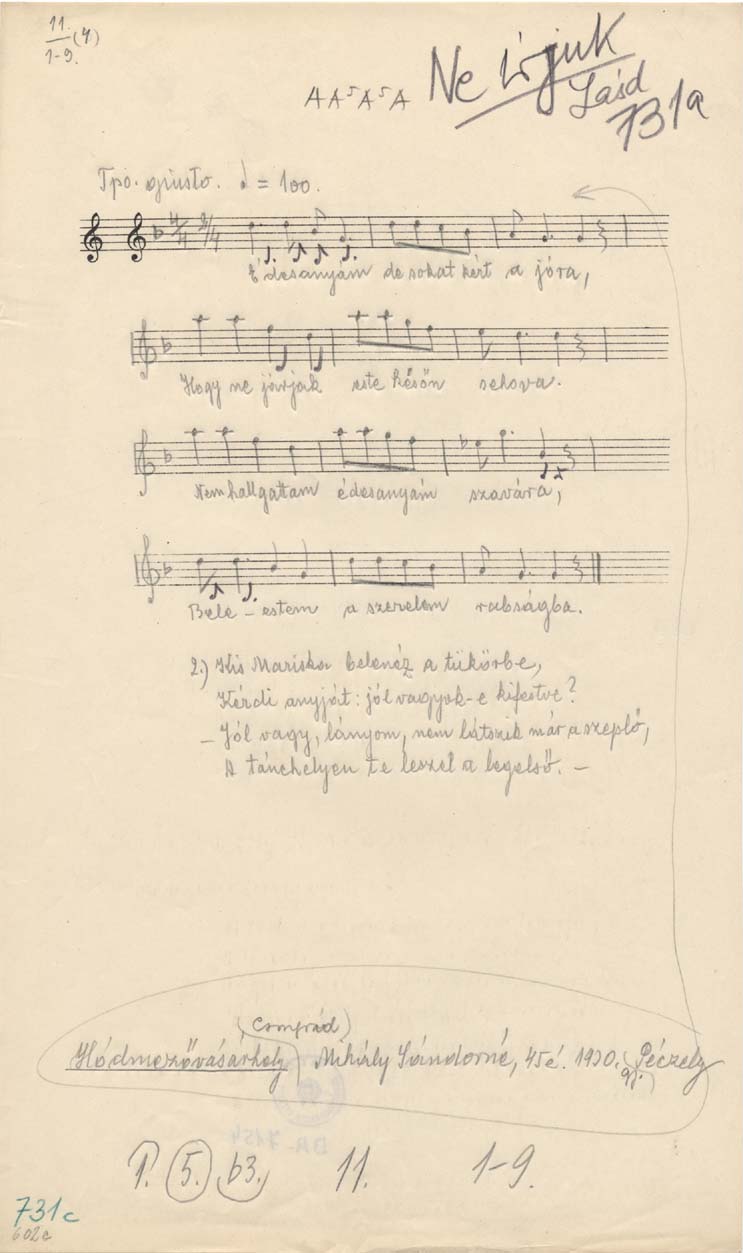 11.
1-9. (4)
A A⁵ A⁵ A
Ne írjuk
Lásd
731a
Tpo. giusto. ♩ = 100.
4/4 2/4
Édesanyám de sokat kért a jóra,
Hogy ne járjak este későn sehova.
Nem hallgattam édesanyám szavára,
Bele - estem a szerelem rabságba.
2.) Kis Mariska belenéz a tükörbe,
Kérdi anyját: jól vagyok-e kifestve?
– Jól vagy, lányom, nem látszik már a szeplő,
A tánchelyen te leszel a legelső. –
(Csongrád)
Hódmezővásárhely Mihály Sándorné, 45 é. 1930. Péczely
gy.
1. 5. b3. 11. 1-9.
731c
602c